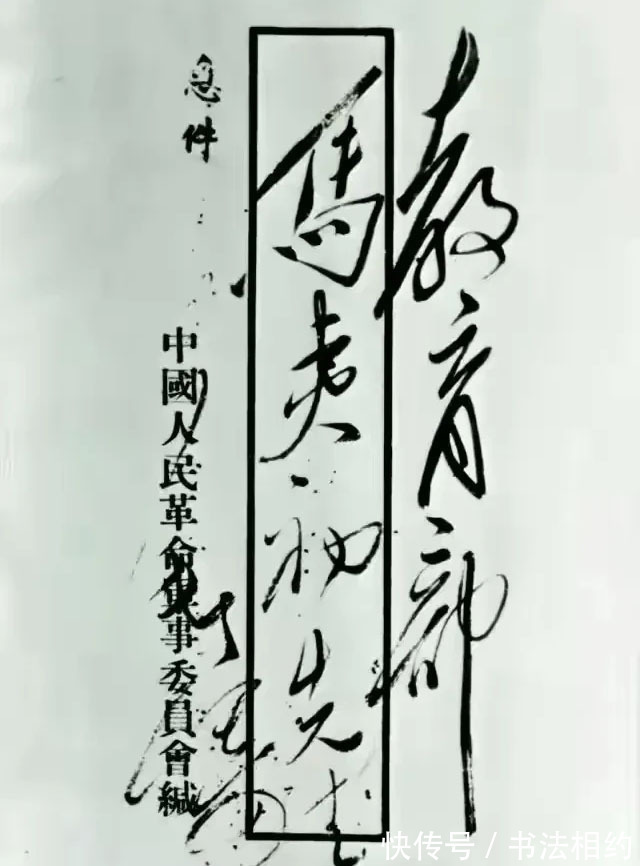 教育部
馬夷初先生
急件
中國人民革命軍事委員會緘
快传号 / 书法相约